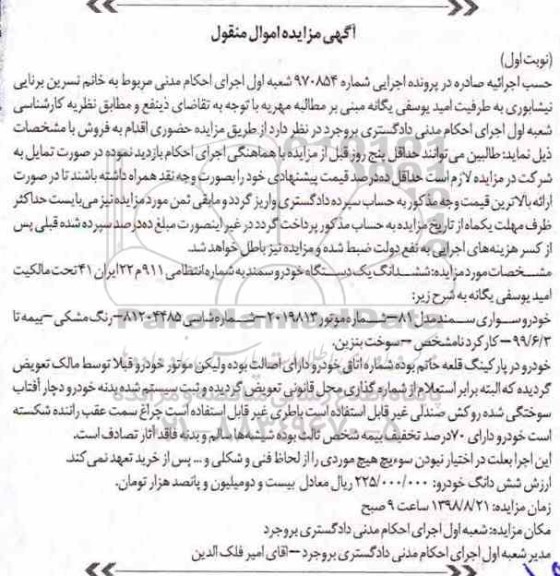 آگهی مزایده اموال منقول
(نوبت اول)
حسب اجرائیه صادره در پرونده اجرایی شماره ۹۷۰۸۵۴ شعبه اول اجرای احکام مدنی مربوط به خانم نسرین برنایی
نیشابوری به طرفیت امید یوسفی یگانه مبنی بر مطالبه مهریه با توجه به تقاضای ذینفع و مطابق نظریه کارشناسی
شعبه اول اجرای احکام مدنی دادگستری بروجرد در نظر دارد از طریق مزایده حضوری اقدام به فروش با مشخصات
ذیل نماید: طالبین می توانند حداقل پنج روز قبل از مزایده با هماهنگی اجرای احکام بازدید نموده در صورت تمایل به
شرکت در مزایده لازم است حداقل ده درصد قیمت پیشنهادی خود را بصورت وجه نقد همراه داشته باشند تا در صورت
ارائه بالاترین قیمت وجه مذکور به حساب سپرده دادگستری واریز گردد و مابقی ثمن مورد مزایده نیز می بایست حداکثر
ظرف مهلت یکماه از تاریخ مزایده به حساب مذکور پرداخت گردد در غیر اینصورت مبلغ ده درصد سپرده شده قبلی پس
از کسر هزینه های اجرایی به نفع دولت ضبط شده و مزایده نیز باطل خواهد شد.
مشخصات مورد مزایده: ششدانگ یک دستگاه خودرو سمند به شماره انتظامی ۹۱۱م۲۲ ایران ۴۱ تحت مالکیت
امید یوسفی یگانه به شرح زیر:
خودرو سواری سمند مدل ۸۱-شماره موتور ۲۰۱۹۸۱۳-شماره شاسی ۸۱۲۰۴۴۸۵-رنگ مشکی-بیمه تا
۹۹/۶/۳-کارکرد نامشخص-سوخت بنزین.
خودرو در پارکینگ قلعه حاتم بوده شماره اتاق خودرو دارای اصالت بوده ولیکن موتور خودرو قبلا توسط مالک تعویض
گردیده که البته برابر استعلام از شماره گذاری محل قانونی تعویض گردیده و ثبت سیستم شده بدنه خودرو دچار آفتاب
سوختگی شده روکش صندلی غیر قابل استفاده است باطری غیر قابل استفاده است چراغ سمت عقب راننده شکسته
است خودرو دارای ۷۰درصد تخفیف بیمه شخص ثالث بوده شیشه ها سالم و بدنه فاقد آثار تصادف است.
این اجرا بعلت در اختیار نبودن سوییچ هیچ موردی را از لحاظ فنی و شکلی و ... پس از خرید تعهد نمی کند.
ارزش شش دانگ خودرو: ۲۲۵/۰۰۰/۰۰۰ ریال معادل بیست و دو میلیون و پانصد هزار تومان.
زمان مزایده: ۱۳۹۸/۸/۲۱ ساعت ۹ صبح
مکان مزایده: شعبه اول اجرای احکام مدنی دادگستری بروجرد
مدیر شعبه اول اجرای احکام مدنی دادگستری بروجرد-اقای امیر فلک الدین
ParsNamadData